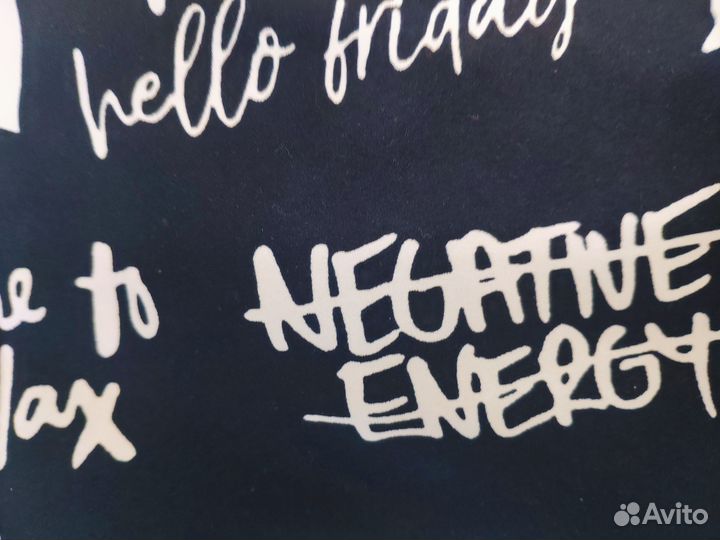 hello friday
to
NEGATIVE
ENERGY
Avito